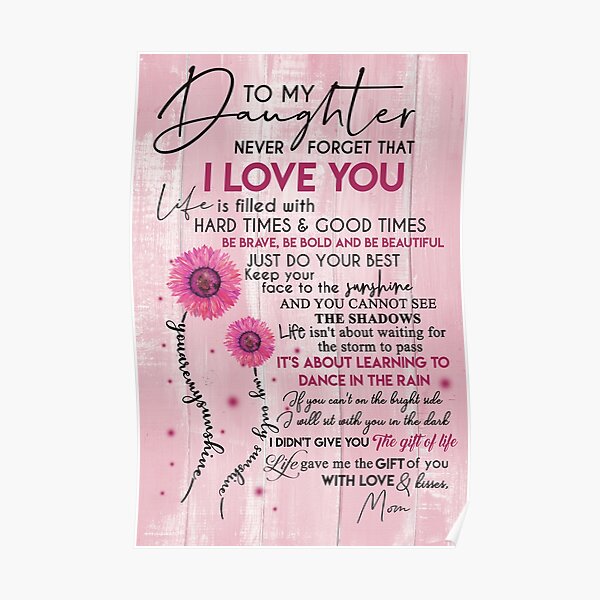 TO MY
Daughter
NEVER FORGET THAT
I LOVE YOU
Life is filled with
HARD TIMES & GOOD TIMES
BE BRAVE, BE BOLD AND BE BEAUTIFUL
JUST DO YOUR BEST
Keep your
face to the sunshine
AND YOU CANNOT SEE
THE SHADOWS
Life isn't about waiting for
the storm to pass
IT'S ABOUT LEARNING TO
DANCE IN THE RAIN
If you can't on the bright side
I will sit with you in the dark
I DIDN'T GIVE YOU The gift of life
Life gave me the GIFT of you
WITH LOVE & kisses,
Mom
youaremysunshine
my only sunshine